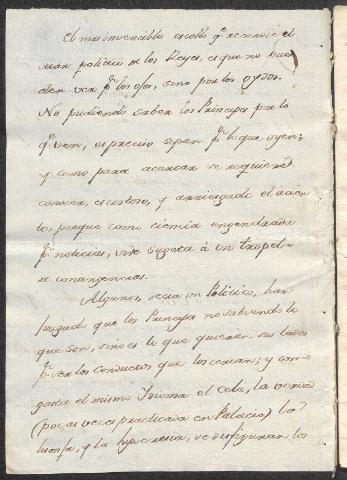 El mas invencible escollo q.e reconoce el
mar politico de los Reyes, es que no pue-
den ver p.r los ojos, sino por los oydos.
No pudiendo saber los Principes por lo
q.e ven, es preciso sepan p.r lo que oyen;
y como para acertar se requiere
conocer, es costoso, y arriesgado el acier-
to, porque como ciencia engendrada
p.r noticias, vive sugeta á un tropel
de contingencias.
Algunos, decia un Politico, han
juzgado que los Principes no sabiendo lo
que son, sino es lo que quieren sus lados
p.r ser los conductos que los cercan; y como
gasta el mismo Idioma el Celo, la verdad
(pocas veces practicada en Palacio) la
lisonja, y la hipocresia, se desfiguran los